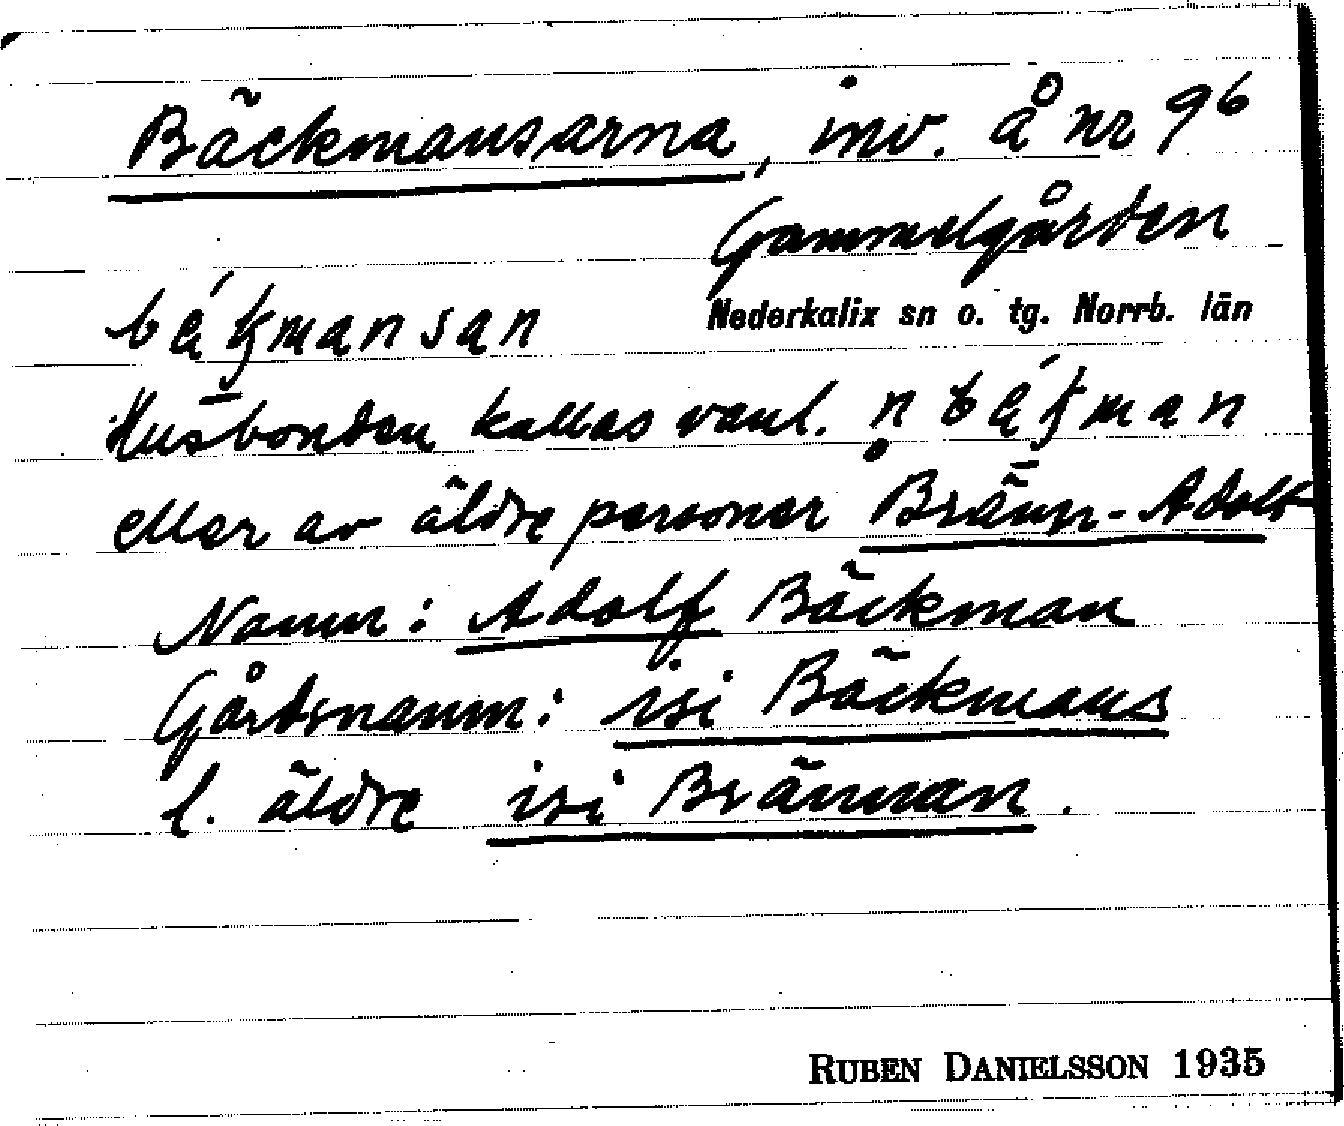 Bäckmansarna, inv. å nr 96
Gammelgården
Nederkalix sn o. tg. Norrb. län
Husbonden kallas vanl.
eller av äldre personer Bränn-Adolf
Namn: Adolf Bäckman
Gårdsnamn: isi Bäckmans
l. äldre isi Brännan.
RUBEN DANIELSSON 1935